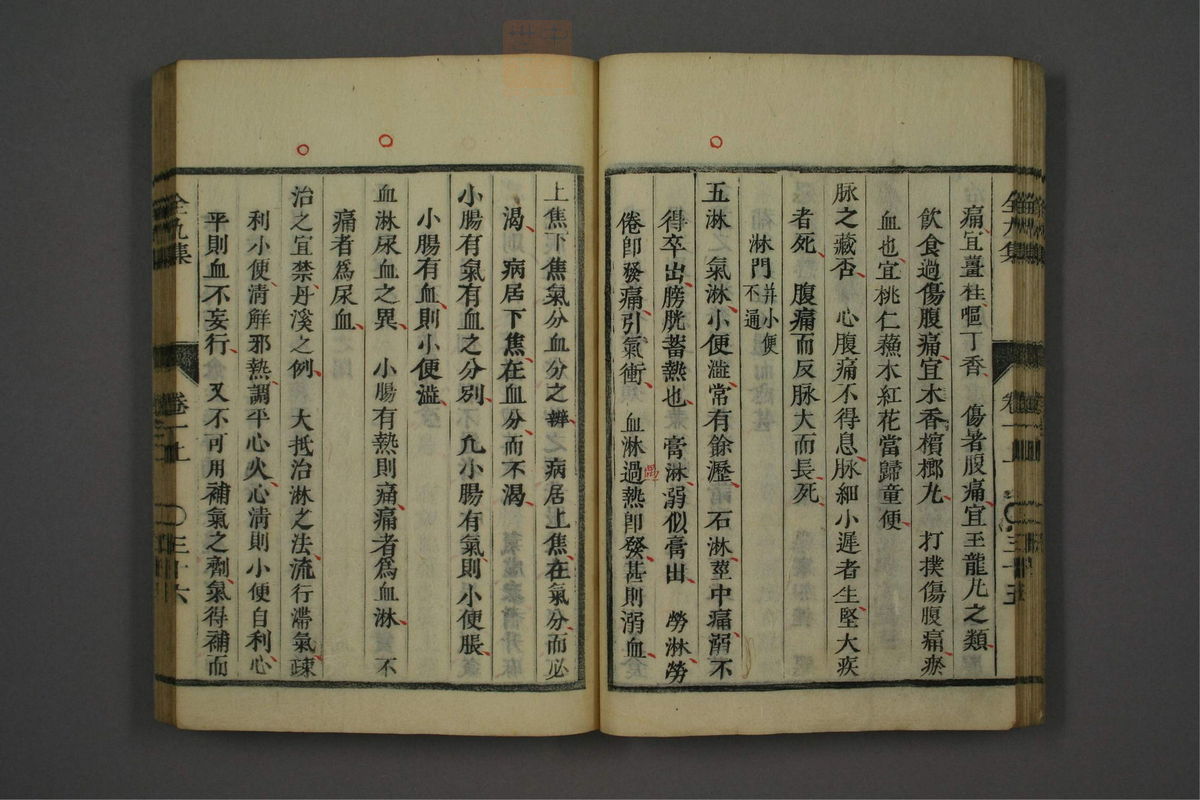 痛宜薑桂嘔丁香 傷暑腹痛宜玉龍丸之類
飲食過傷腹痛宜木香檳榔丸 打撲傷腹痛瘀
血也宜桃仁蘓木紅花當歸童便
脉之藏否 心腹痛不得息脉細小遲者生堅大疾
者死 腹痛而反脉大而長死
淋門并小便不通
五淋 氣淋小便澁常有餘瀝 石淋莖中痛溺不
得卒出膀胱蓄熱也 膏淋溺似膏出 勞淋勞
倦卽發痛引氣衝 血淋過熱卽發甚則溺血
上焦下焦氣分血分之辨 病居上焦在氣分而必
渴 病居下焦在血分而不渴
小腸有氣有血之分別 凢小腸有氣則小便脹
小腸有血則小便澁
血淋尿血之異 小腸有熱則痛痛者爲血淋 不
痛者爲尿血
治之宜禁丹溪之例 大抵治淋之法流行滯氣疎
利小便淸解邪熱調平心火心淸則小便自利心
平則血不妄行 又不可用補氣之劑氣得補而
全九集
卷一上
三十六
全九集
卷一上
三十五